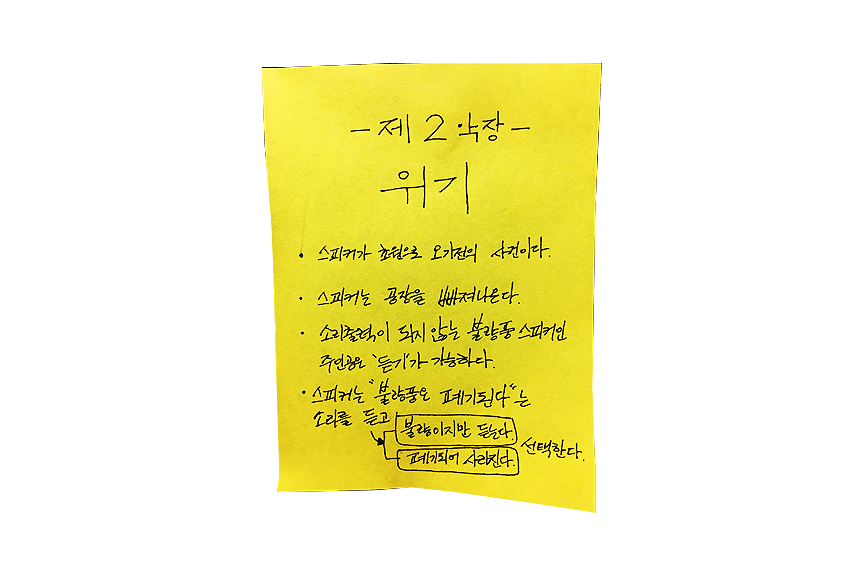 - 제 2 악장 -
위기
• 스피커가 초원으로 오기전의 사건이다.
• 스피커는 공장을 빠져나온다.
• 소리출력이 되지 않는 불량품 스피커인
주인공은 '듣기'가 가능하다.
• 스피커는 "불량품은 폐기된다"는
소리를 듣고
불량이지만 듣는다.
폐기되어 사라진다.
선택한다.